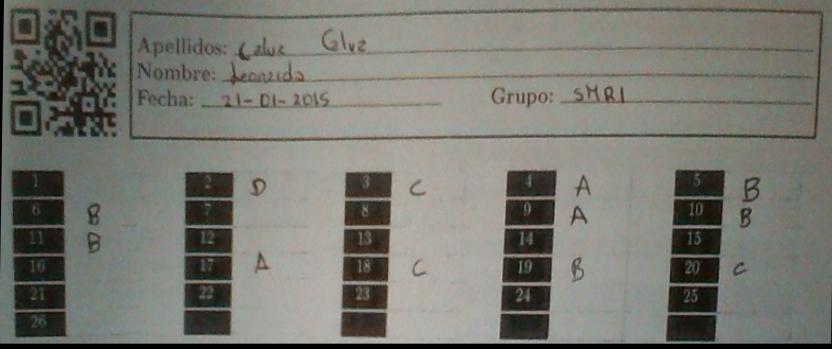 Apellidos: Calvo
Nombre: Leonardo
Fecha: 21-01-2015 Grupo: SMR1
1 2 D 3 C 4 A 5 B
6 B 7 8 9 A 10 B
11 B 12 13 14 15
16 17 A 18 C 19 B 20 C
21 22 23 24 25
26